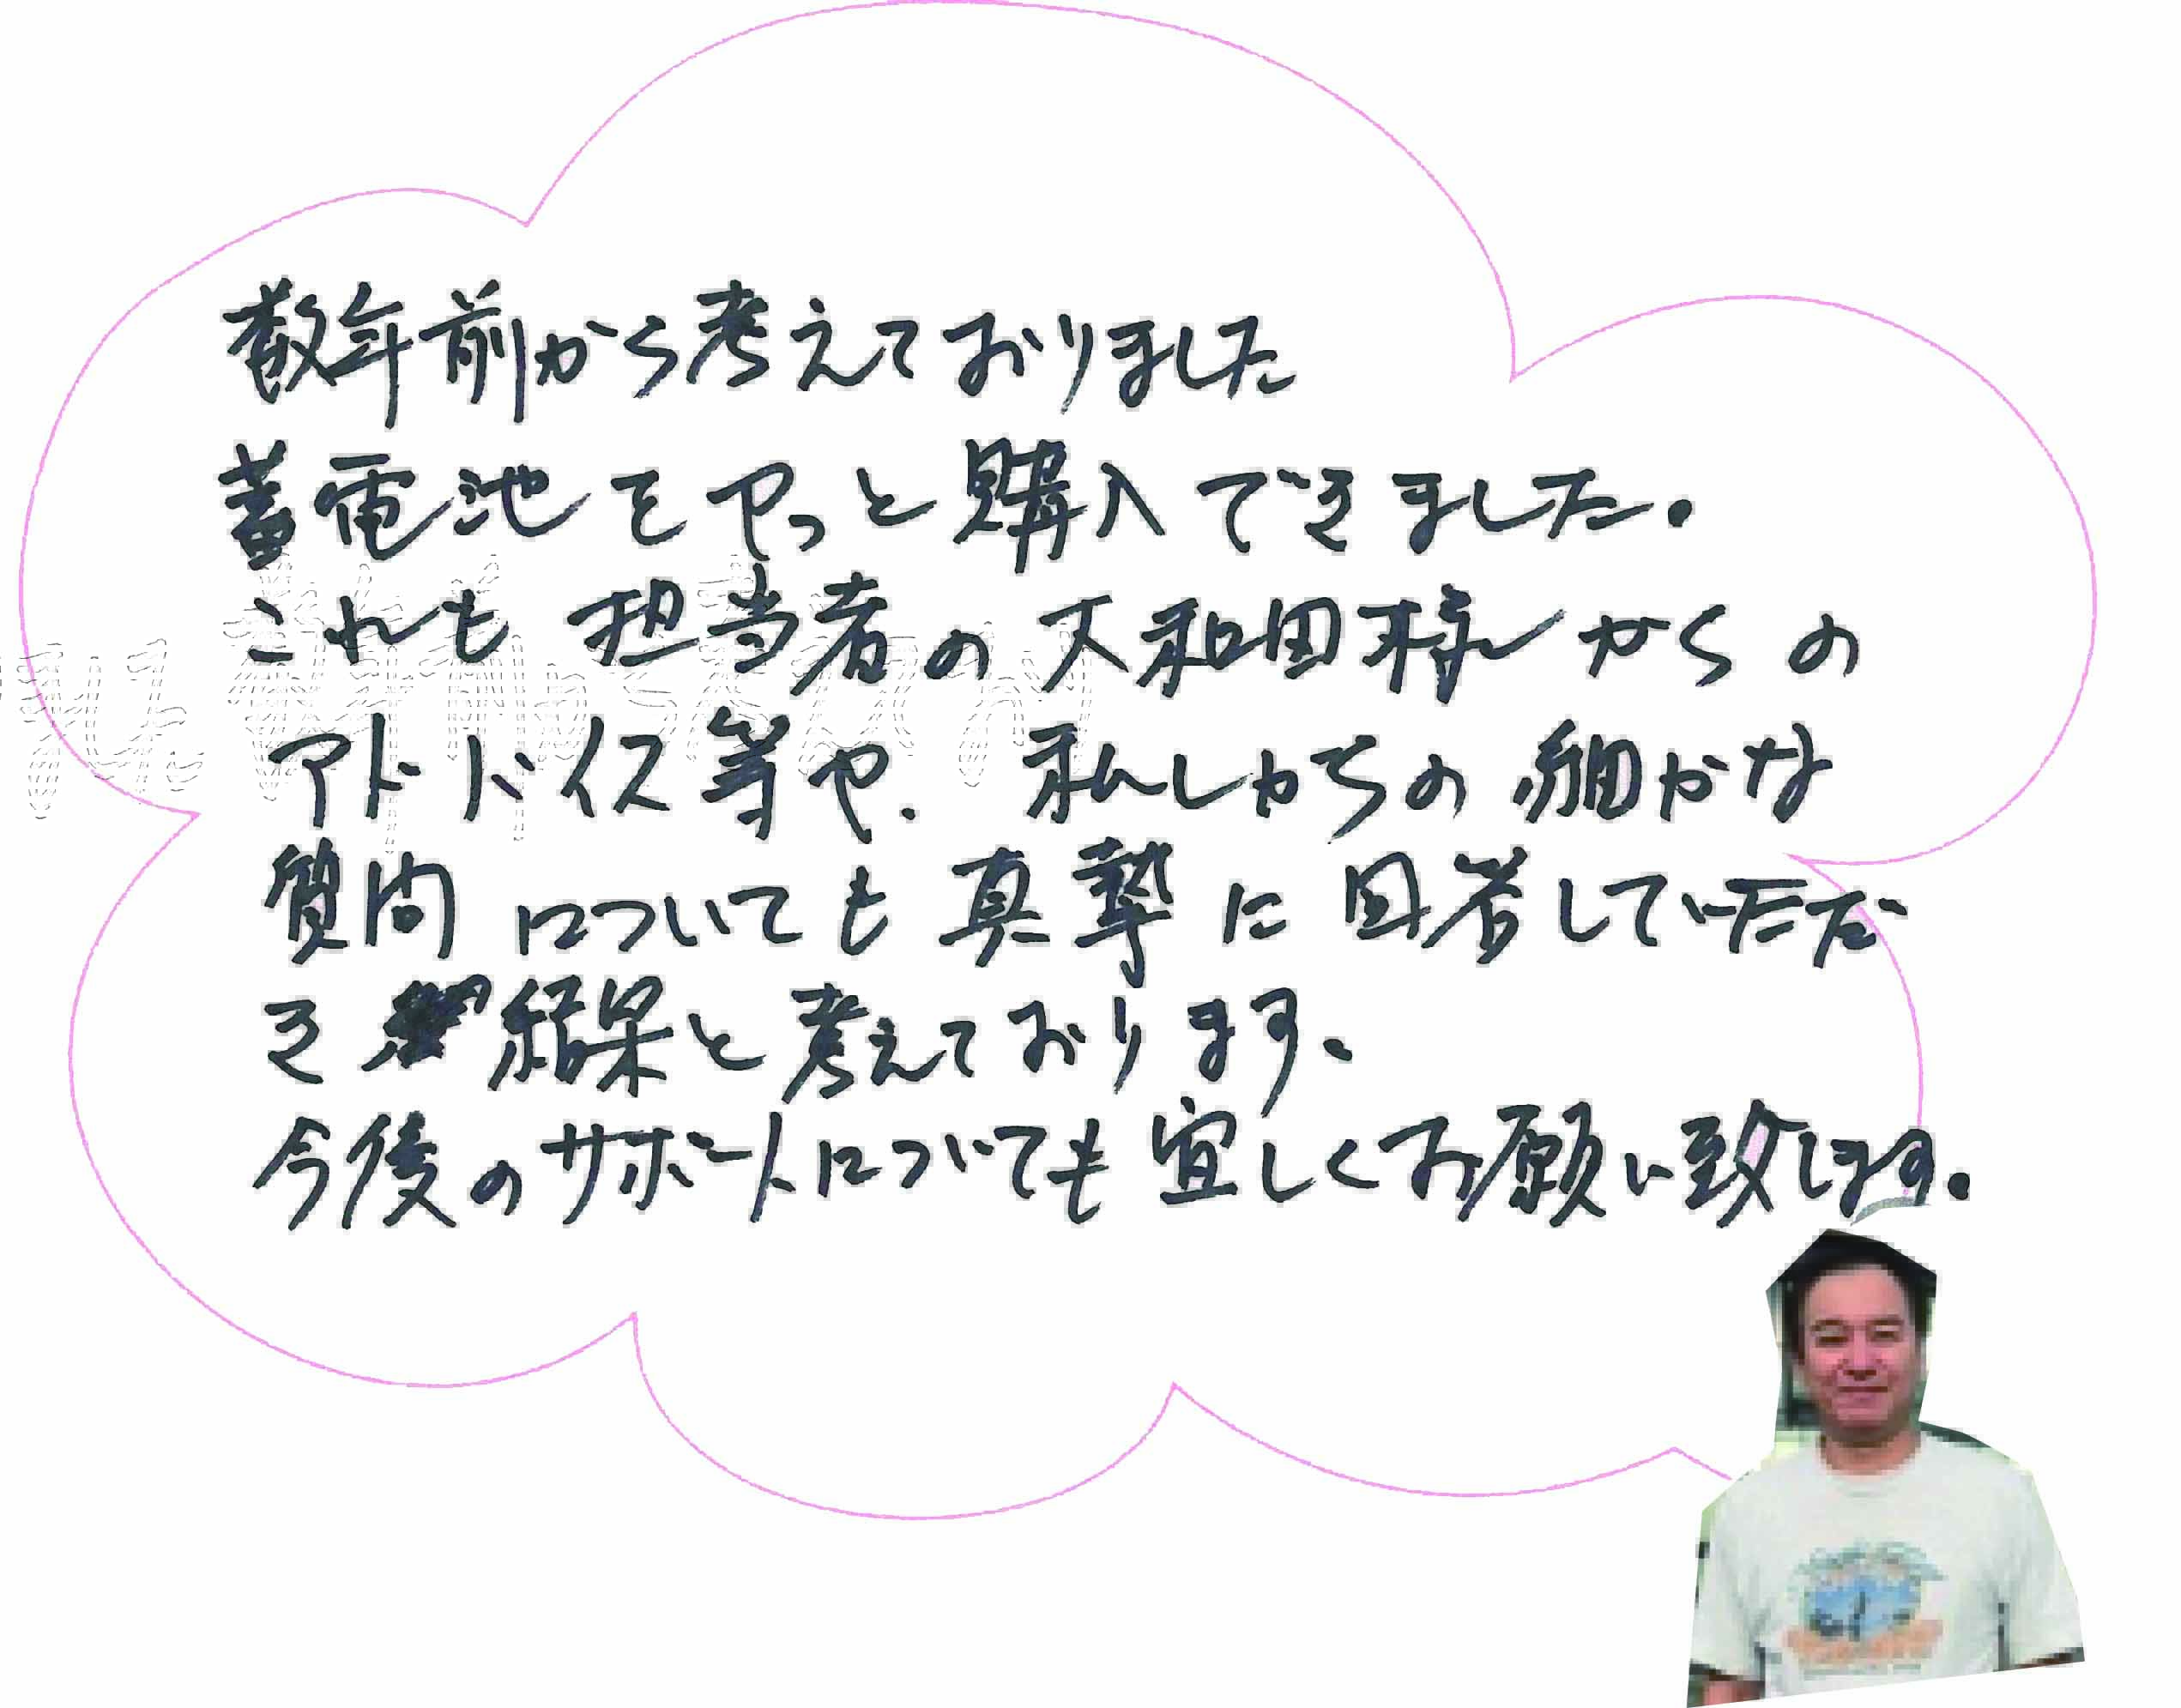 数年前から考えておりました
蓄電池をやっと購入できました。
これも担当者の大和田様からの
アドバイス等や、私したちの細かな
質問についても真摯に回答していただ
き結果と考えております、
今後のサポートについても宜しくお願い致します。